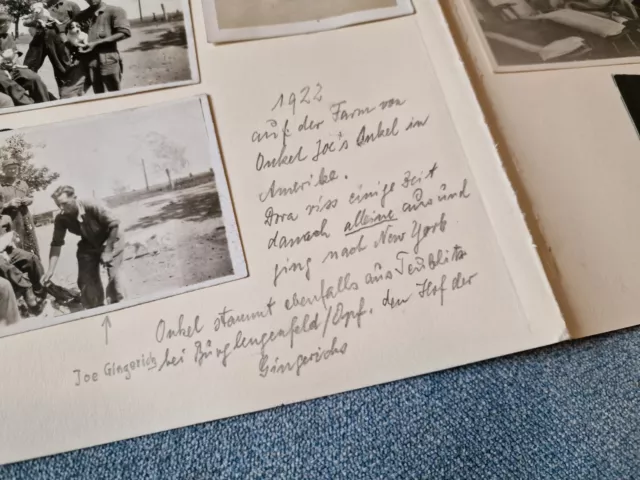 1922
auf der Farm von
Onkel Joe's Onkel in
Amerika.
Dora riss einige Zeit
danach alleine aus und
ging nach New York
Onkel stammt ebenfalls aus Teublitz
bei Burglengenfeld/Opf. den Hof der
Gingerichs
Joe Gingerich